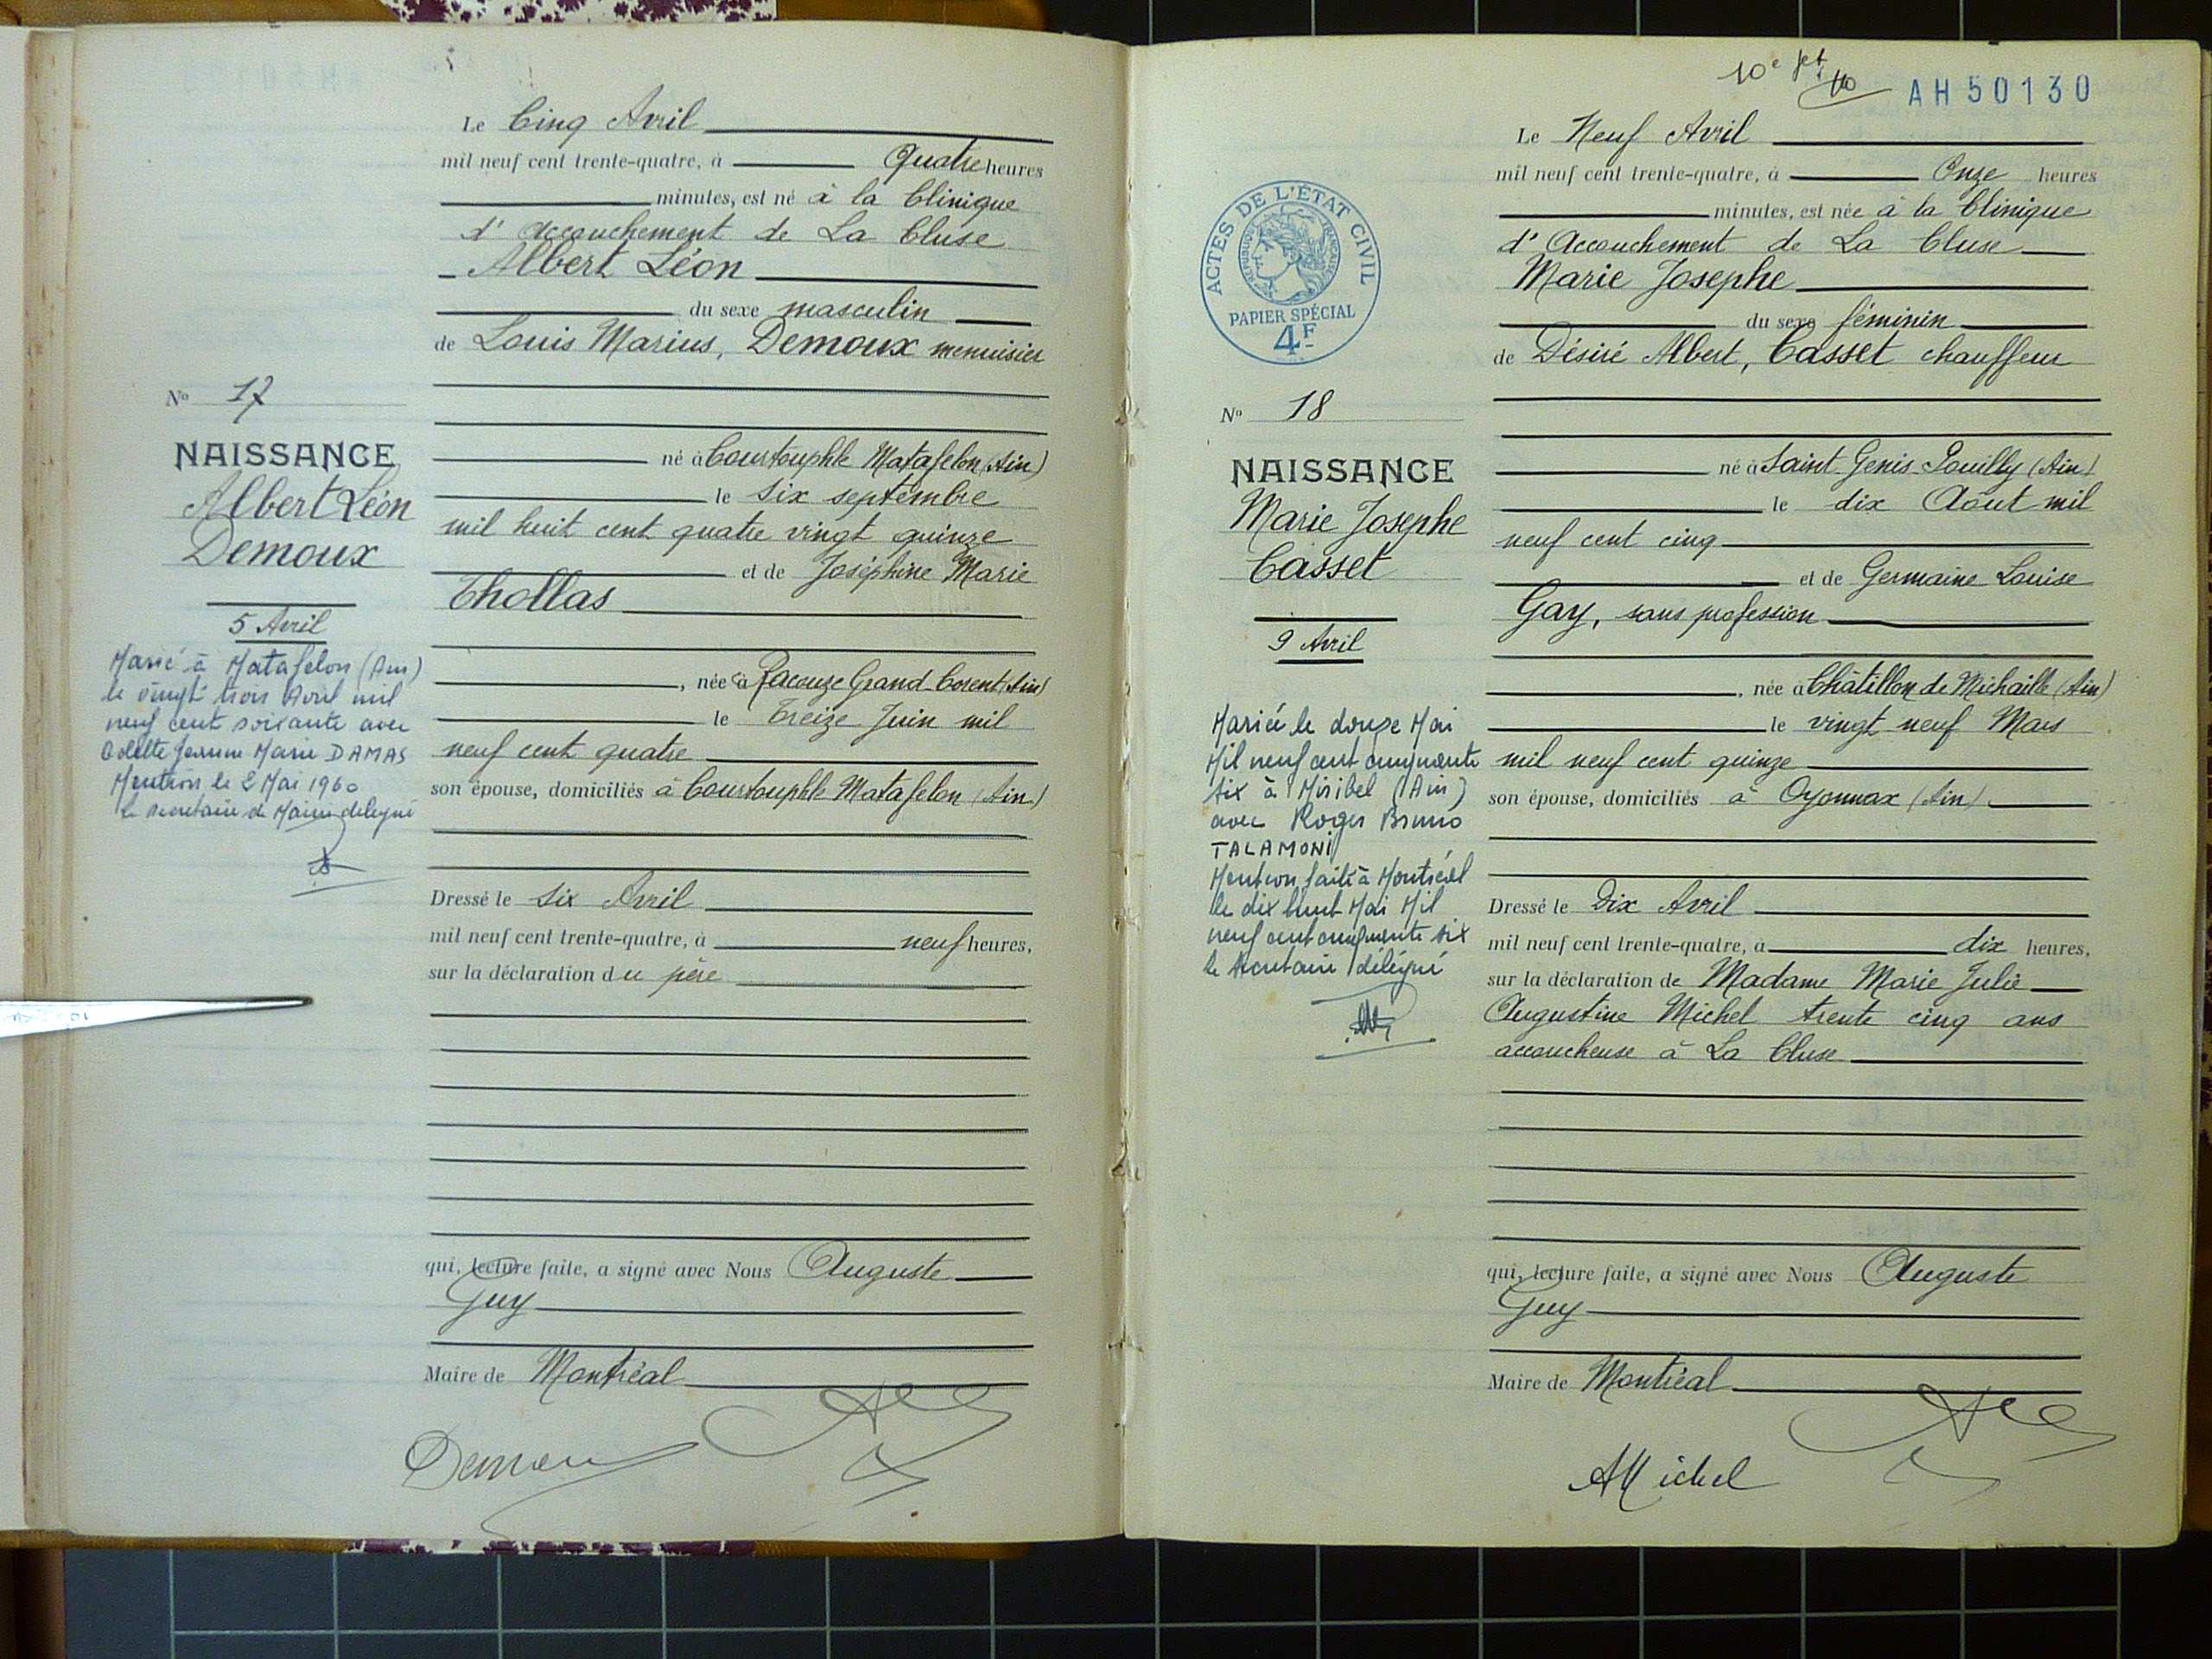 Le Cinq Avril
mil neuf cent trente-quatre, à Quatre heures
minutes, est né à la Clinique
d'Accouchement de La Cluse
Albert Léon
du sexe masculin
de Louis Marius, Demoux menuisier
né à Courtouphle Matafelon (Ain)
le six septembre
mil huit cent quatre vingt quinze
et de Joséphine Marie
Chollas
, née à Racouze Grand-Corent (Ain)
le Treize Juin mil
neuf cent quatre
son épouse, domiciliés à Courtouphle Matafelon (Ain)
Dressé le six Avril
mil neuf cent trente-quatre, à neuf heures,
sur la déclaration du père
qui, lecture faite, a signé avec Nous Auguste
Guy
Maire de Montréal
Demoux
No 17
NAISSANCE
Albert Léon
Demoux
5 Avril
Marié à Matafelon (Ain)
le vingt trois Avril mil
neuf cent soixante avec
Odette Jeanne Marie DAMAS
Mention le 2 Mai 1960
le secrétaire de Mairie délégué
10e
AH 50130
Le Neuf Avril
mil neuf cent trente-quatre, à Onze heures
minutes, est née à la Clinique
d'Accouchement de La Cluse
Marie Josephe
du sexe féminin
de Désiré Albert, Casset chauffeur
né à Saint-Genis-Pouilly (Ain)
le dix Août mil
neuf cent cinq
et de Germaine Louise
Gay, sans profession
, née à Châtillon de Michaille (Ain)
le vingt neuf Mars
mil neuf cent quinze
son épouse, domiciliés à Oyonnax (Ain)
Dressé le Dix Avril
mil neuf cent trente-quatre, à dix heures,
sur la déclaration de Madame Marie Julie
Augustine Michel trente cinq ans
accoucheuse à La Cluse
qui, lecture faite, a signé avec Nous Auguste
Guy
Maire de Montréal
AMichel
ACTES DE L'ÉTAT CIVIL
REPUBLIQUE FRANÇAISE
PAPIER SPÉCIAL
4F
No 18
NAISSANCE
Marie Josephe
Casset
9 Avril
Mariée le douze Mai
Mil neuf cent cinquante
six à Miribel (Ain)
avec Roger Bruno
TALAMONI
Mention faite à Montréal
le dix huit Mai Mil
neuf cent cinquante six
le secrétaire délégué